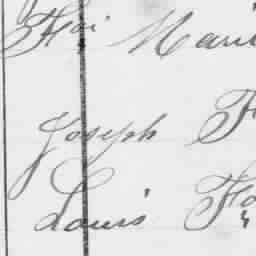 Foi Mari
Joseph F
Louis Fo